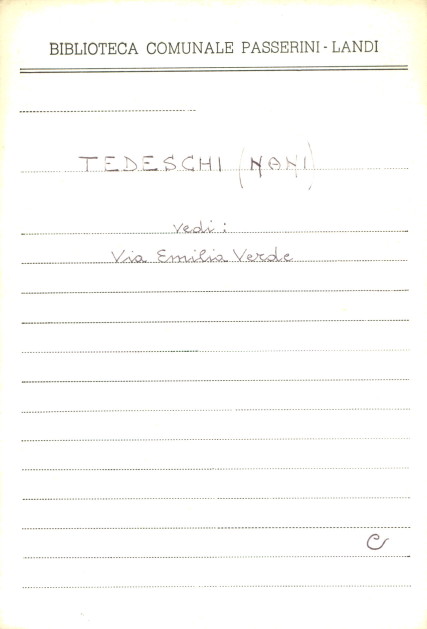 BIBLIOTECA COMUNALE PASSERINI - LANDI
TEDESCHI (NANI)
vedi:
Via Emilia Verde
C